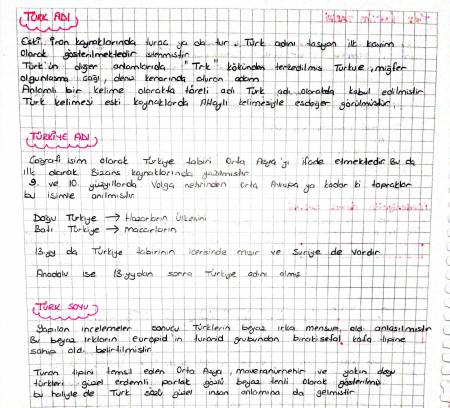 TÜRK ADI
Eski İran kaynaklarında turac ya da tur. Türk adını taşıyan ilk kavim
olarak gösterilmektedir
Türk'ün diğer anlamlarıda "Türk" kökünden terkedilmiş Türkiye, miğfer
olgunlaşma çağı, deniz kenarında oturan adam
Anlamlı bir kelime olarakta töreli adı Türk adı olarakta kabul edilmiştir
Türk kelimesi eski kaynaklarda Altaylı kelimesiyle eşdeğer görülmüştür.
TÜRKİYE ADI
Coğrafi isim olarak Türkiye tabiri Orta Asya'yı ifade etmektedir. Bu da
ilk olarak Bizans kaynaklarında yazılmıştır
9. ve 10. yüzyıllarda Volga nehrinden Orta Avrupa ya kadar ki topraklar
bu isimle anılmıştır
Doğu Türkiye → Hazarların ülkesini
Batı Türkiye → macarların
13.yy da Türkiye tabirinin içerisinde mısır ve Suriye de vardır
Anadolu ise 13.yydan sonra Türkiye adını almış
TÜRK SOYU
Yapılan incelemeler sonucu Türklerin beyaz ırka mensup old. anlaşılmıştır
Bu beyaz ırkların europid'in turanid grubundan birakisefal kafa tipine
sahip old. belirtilmiştir
Turan tipini temsil eden Orta Asya, maveraünnehir ve yakın doğu
türkleri güzel erdemli parlak gözlü beyaz tenli olarak gösterilmiş
bi haliyle de Türk sözü güzel insan anlamına da gelmiştir